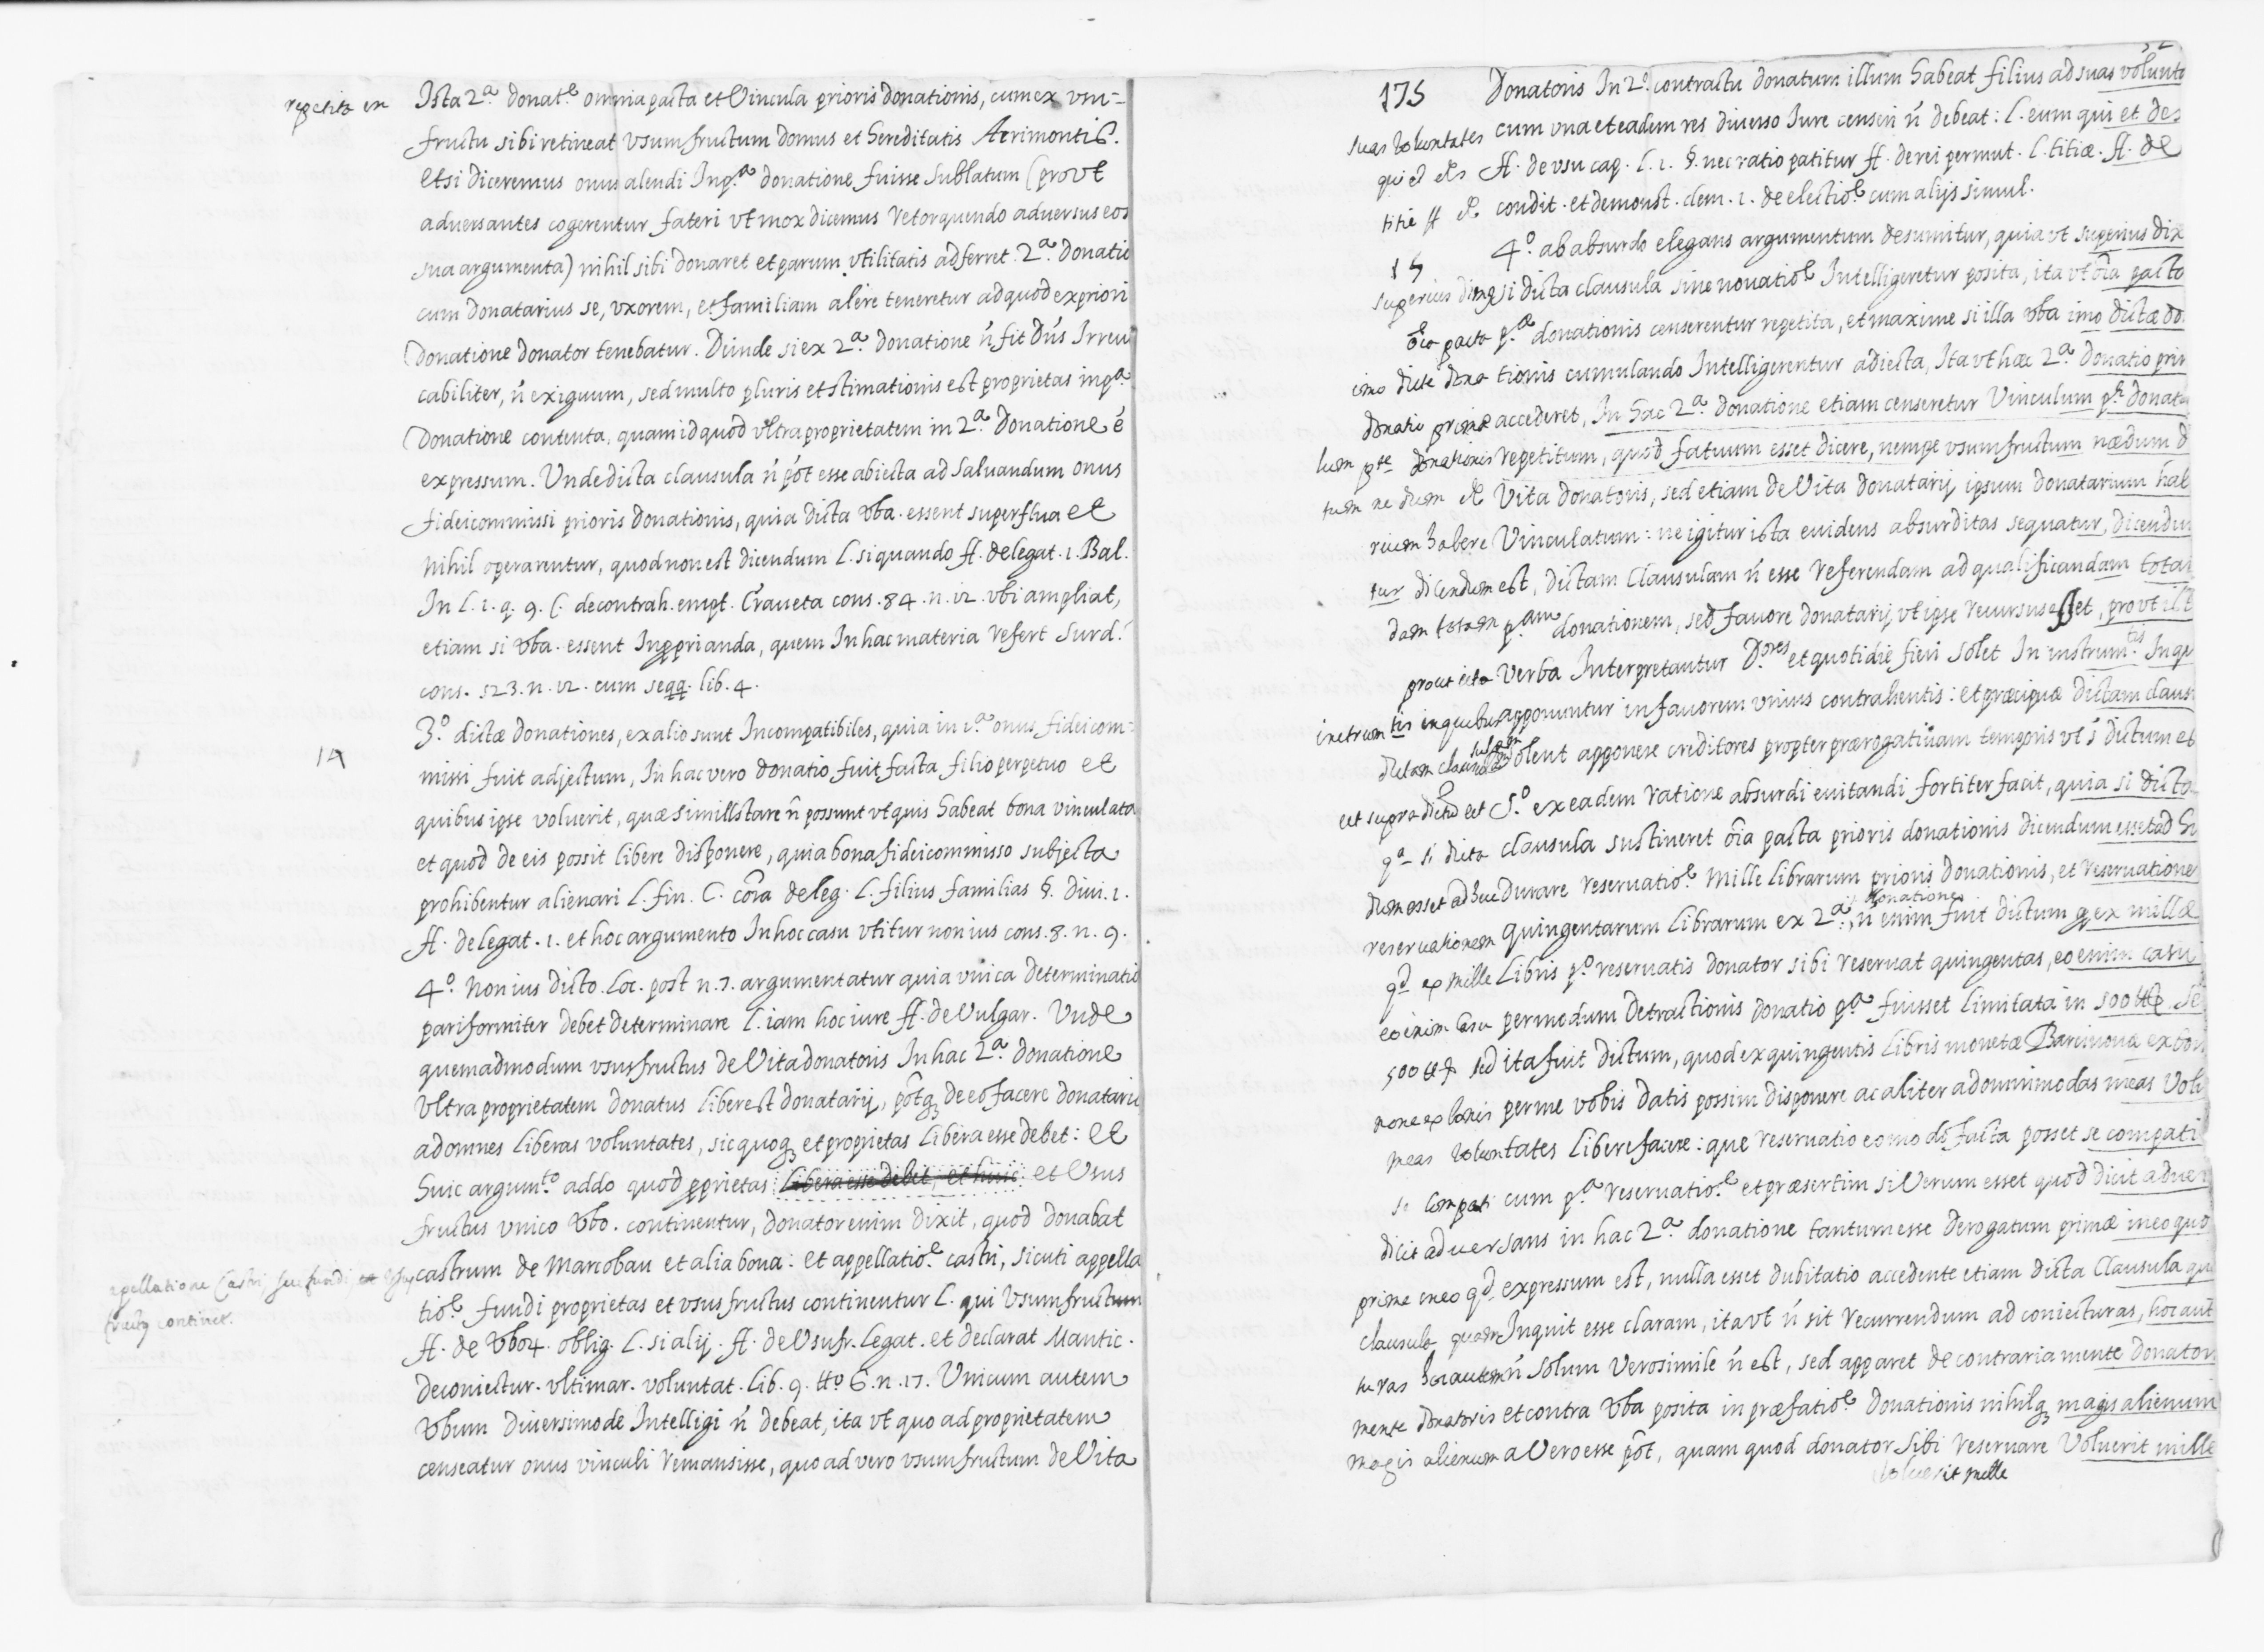 repetita en
Ista 2ª. donatᵉ omnia pacta et Vincula prioris donationis, cum ex vsu=
fructu sibi retineat vsumfructum domus et hereditatis Aerimontis.
etsi diceremus onus alendi In pª. donatione fuisse sublatum (provt
adversantes cogerentur fateri vt mox dicemus retorquendo adversus eos
sua argumenta) nihil sibi donaret et parum vtilitatis adferret 2ª. donatio
cum donatarius se, vxorem, et familiam alere teneretur ad quod ex priori
Donatione donator tenebatur. Deinde si ex 2ª. donatione ñ fit Dñs Irreuo
cabiliter, ñ exiguum, sed multo pluris estimationis est proprietas in pª.
Donatione contenta, quam id quod vltra proprietatem in 2ª. Donatione é
expressum. Unde dicta clausula ñ põt esse abiecta ad saluandum onus
fideicommissi prioris donationis, quia dicta vba. essent superflua et
nihil operarentur, quod non est dicendum L. si quando ff. de legat. 1. Bal.
In L. 1. q. 9. C. de contrah. empt. Craveta cons. 84. n. 12. vbi ampliat,
etiam si vba. essent Inpprianda, quem In hac materia refert Surd.
cons. 523. n. 12. cum seqq. lib. 4.
14
3º. dictæ donationes, ex alio sunt Incompatibiles, quia in 1ª. onus fideicom=
missi fuit adjectum, In hac vero donatio fuit facta filio perpetuo et
quibus ipse voluerit, quæ simill stare ñ possunt vt quis habeat bona vinculata
et quod de eis possit libere disponere, quia bona fideicommisso subjecta
prohibentur alienari L. fin. C. cõia de leg. L. filius familias §. diui. 1.
ff. de legat. 1. et hoc argumento In hoc casu vtitur nonius cons. 8. n. 9.
4º. Nonius dicto. Loc. post n. 7. argumentatur quia vnica determinatio
pariformiter debet determinare L. iam hoc iure ff. de Vulgar. Vnde
quemadmodum vsusfructus de Vita donatoris In hac 2ª. donatione
Vltra proprietatem donatus liber est donatarij, põtq. de eo facere donatariu
ad omnes liberas voluntates, sic quoq. et proprietas libera esse debet: et
huic argumᵗᵒ. addo quod pprietas libera esse debet, et huic et Vsus
fructus vnico vbo. continentur, donator enim dixit, quod donabat
apellatione Castri, seu fundi et Vsus
fructus continet.
castrum de Marcobau et alia bona: et appellatioᵉ castri, sicuti appella
tioᵉ fundi proprietas et vsusfructus continentur L. qui Vsumfructum
ff. de vbor. oblig. L. si alij. ff. de Vsufr. legat. et declarat Mantic.
de coniectur. vltimar. voluntat. lib. 9. ttº 6. n. 17. Vnicum autem
Vbum diuersimode Intelligi ñ debeat, ita vt quo ad proprietatem
censeatur onus vinculi remansisse, quo ad vero vsumfructum de Vita
175
Donatoris In 2º. contractu donatum illum habeat filius ad suas volunta
suas voluntates cum vna et eadem res diuerso Iure censeri ñ debeat: L. eum qui et des
qui et des ff. de vsu cap. L. 1. §. nec ratio patitur ff. de rei permut. L. titiæ. ff. de
titie ff de condit. et demonst. clem. 1. de electioᵉ cum alijs simul.
15
4º. ab absurdo elegans argumentum desumitur, quia vt superius dix
superius dingsi dicta clausula sine nouatioᵉ Intelligeretur posita, ita vt oĩa pacta
oĩa pacta pᵃᵉ donationis censerentur repetita, et maxime si illa vba imo dictæ do
imo dicte dona tionis cumulando Intelligerentur adiecta, Ita vt hæc 2ª. donatio prim
donatio prime accederet, In hac 2ª. donatione etiam censeretur Vinculum pᵉ donat
lum pᵗᵉ donationis repetitum, quod fatuum esset dicere, nempe vsumfructum nædum d
tum ne dum de Vita donatoris, sed etiam de Vita donatarij ipsum donatarium hab
rium habere Vinculatum: ne igitur ista euidens absurditas sequatur, dicendu
tur dicendum est, dictam clausulam ñ esse referendam ad qualificandam totam
dam totam pᵃᵐ donationem, sed fauore donatarij vt ipse recursus esset, provt illa
prout illa Verba Interpretantur Dᵒʳᵉˢ et quotidie fieri solet In instrumᵗⁱˢ. In qu
instrumtis in quibus apponuntur in fauorem vnius contrahentis: et præcipuæ dictam claus
dictam clausulam solent apponere creditores propter prærogatiuam temporis vt s dictum est
vt supra dictũ est 5º ex eadem ratione absurdi euitandi fortiter facit, quia si dicta
qª si dicta clausula sustineret oĩa pacta prioris donationis dicendum esset ad hu
dum esset adhuc durare reservatioᵉ. Mille librarum prioris Donationis, et reservatione
reservationem quingentarum librarum ex 2ª. donatione, ñ enim fuit dictum q ex mille
qᵈ ex mille Libris pº reservatis donator sibi reservat quingentas, eo enim casu
eo enim casu per modum Detractionis donatio pª fuisset limitata in 500 ℔ se
500 ℔ sed ita fuit dictum, quod ex quingentis libris monetæ Barcinonæ ex bon
none ex bonis per me vobis datis possim disponere ac aliter ad omnimodas meas volu
meas voluntates libere facere: que reservatio eo modo facta posset se compati
se compati cum pª reservatioᵉ et præsertim si Verum esset quod dicit adver
dicit adversans in hac 2ª donatione tantum esse derogatum primæ in eo quo
prime in eo qᵈ expressum est, nulla esset dubitatio accedente etiam dicta Clausula qua
clausula quam Inquit esse claram, ita vt ñ sit recurrendum ad coniecturas, hoc aut
turas hoc autem ñ solum verosimile ñ est, sed apparet de contraria mente donator
mente donatoris et contra vba posita in præfatioᵉ Donationis nihilq. magis alienum
magis alienum a Vero esse põt, quam quod donator sibi reservare Voluerit mille
voluerit mille